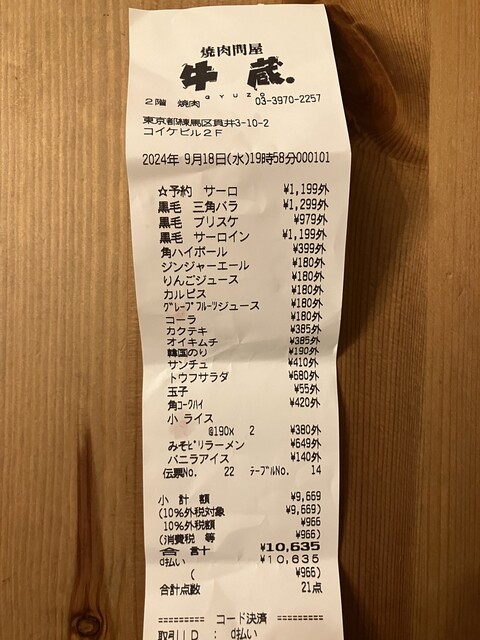 焼肉問屋
牛蔵.
GYUZO
2階 焼肉 03-3970-2257
東京都練馬区貫井3-10-2
コイケビル2F
2024年 9月18日(水)19時58分000101
☆予約 サーロ ¥1,199外
黒毛 三角バラ ¥1,299外
黒毛 ブリスケ ¥979外
黒毛 サーロイン ¥1,199外
角ハイボール ¥399外
ジンジャーエール ¥180外
りんごジュース ¥180外
カルピス ¥180外
グレープフルーツジュース ¥180外
コーラ ¥180外
カクテキ ¥385外
オイキムチ ¥385外
韓国のり ¥190外
サンチュ ¥410外
トウフサラダ ¥680外
玉子 ¥55外
角コークハイ ¥420外
小 ライス
@190x 2 ¥380外
みそピリラーメン ¥649外
バニラアイス ¥140外
伝票No. 22 テーブルNo. 14
小 計 額 ¥9,669
(10%外税対象 ¥9,669)
10%外税額 ¥966
(消費税 等 ¥966)
合 計 ¥10,635
d払い ¥10,635
( ¥966)
合計点数 21点
========= コード決済 =========
取引ID : d払い